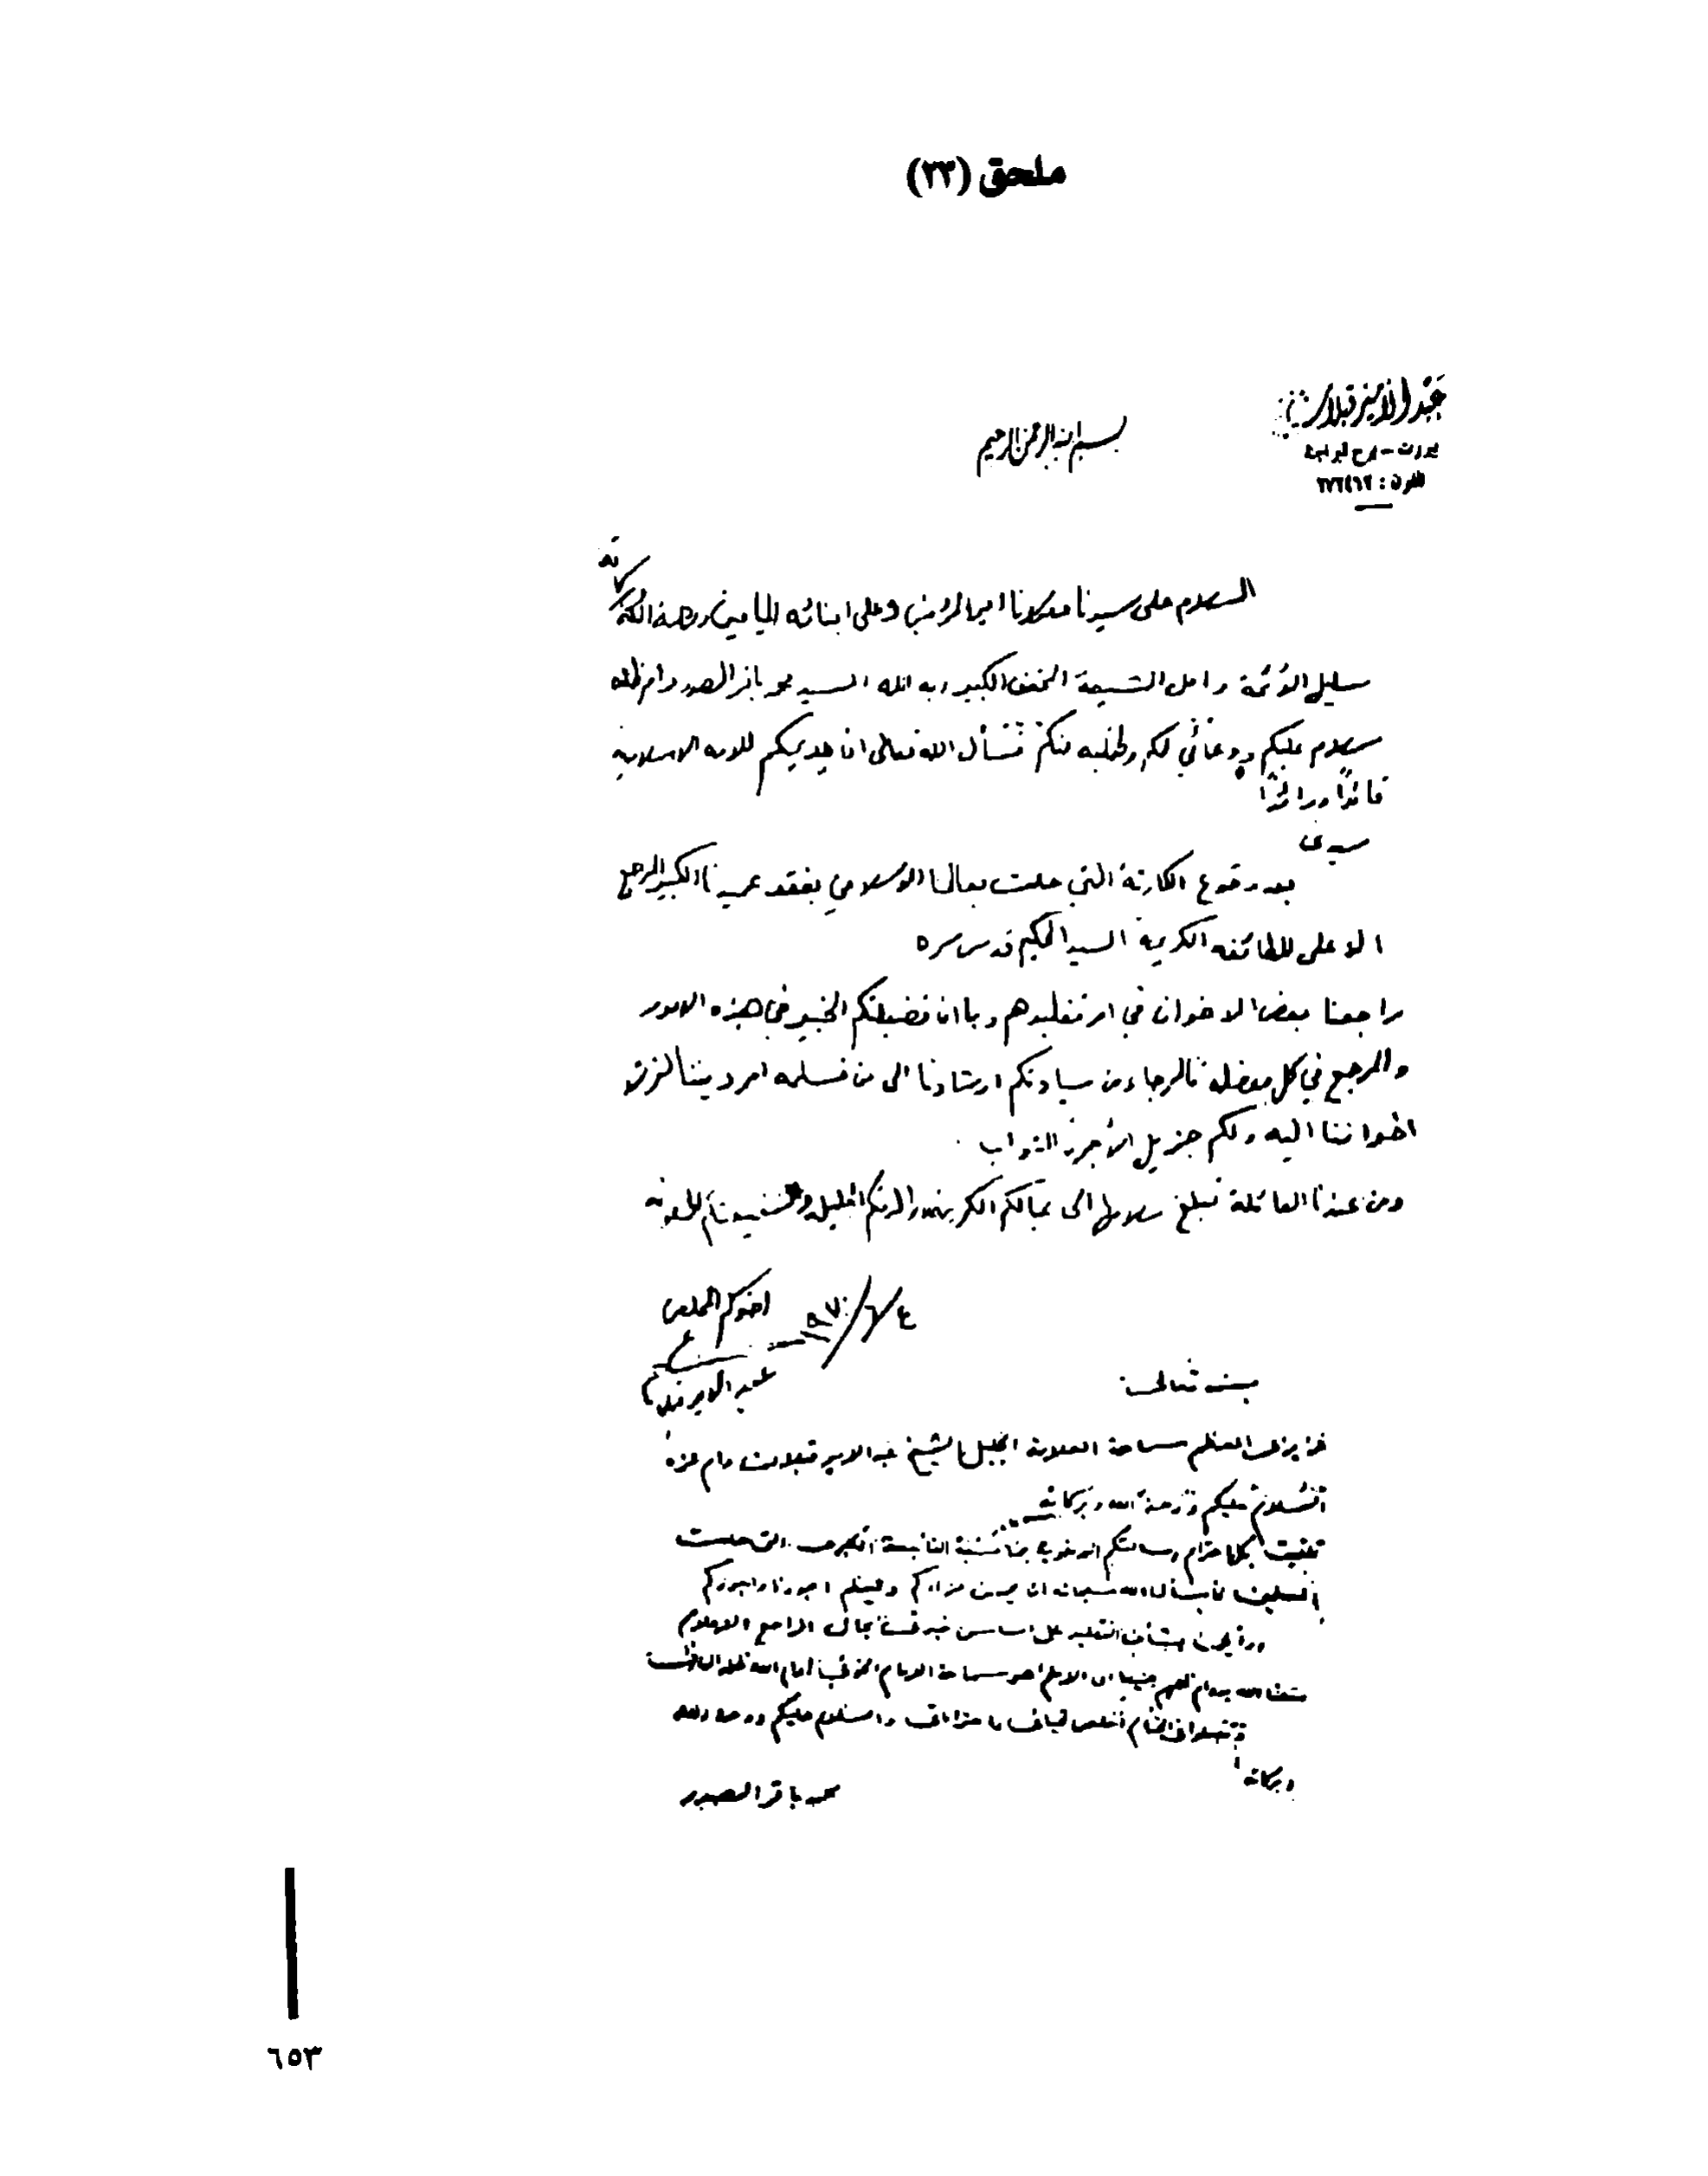 ملحق (٢٣)
عبد الأمير قبلان
بيروت - برج البراجنة
تلفون :
بسم الله الرحمن الرحيم
السلام على سيدنا ومولانا امير المؤمنين وعلى ابنائه الميامين ورحمة الله وبركاته
سليل الائمة وامل الشيعة الكبير اية الله السيد محمد باقر الصدر دام ظله
سلام عليكم ودعائي لكم منكم نسأل الله تعالى ان يديمكم للامه الاسلاميه
قائداً ورائداً
سيدي
بعد وقوع الكارثة التي حلت بعالمنا الاسلامي بفقد عميدنا الكبير المرجع
الاعلى للطائفه الكريمة السيد الحكيم قدس سره
راجعنا بعض الاخوان في امر تقليدهم وبما ان فضيلتكم الخبير في هذه الامور
والمرجع في كل معضلة فالرجاء من سيادتكم ارشادنا الى من نسلمه امر ديننا لنرشد
اخواننا اليه ولكم جزيل الأجر والثواب .
ومن عندنا العائلة تبلغ سلامها الى عيالكم الكريمه والدتكم الجليلة
٤/٦/١٩٧٠ اخوكم المخلص
عبد الامير قبلان
بسمه تعالى
عزيزي المعظم سماحة العلامة الجليل الشيخ عبد الامير قبلان دام عزه
السلام عليكم ورحمة الله وبركاته
تلقيت بكل احترام رسالتكم بمناسبة الفاجعة الكبرى التي حلت
بالمسلمين الله سبحانه ان يحسن عزاءكم ويعظم اجورنا واجوركم
بشأن التقليد على اساس المراجع الاعلام
متعنا الله بدوام ظلهم جميعا ان الاعلم هو سماحة الامام الخوئي ادام الله ظله
وتفضلوا في الختام احترامي والسلام عليكم ورحمة الله
وبركاته
محمد باقر الصدر
٦٥٣